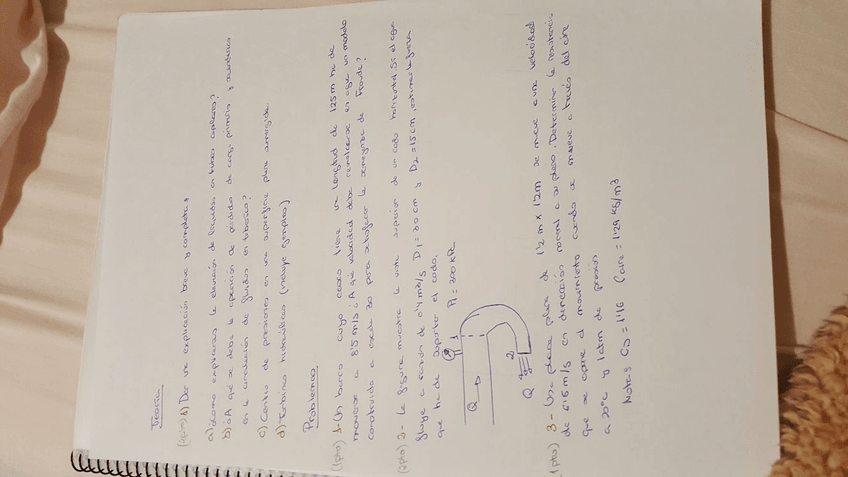 Teoría
(2pto) 1) Dar una explicación breve y completa a
a) ¿Cómo explicarías la elevación de líquidos en tubos capilares?
b) ¿A qué se debe la aparición de pérdidas de carga primaria y secundarias
en la circulación de fluidos en tuberías?
c) Centro de presiones en una superficie plana sumergida
d) Turbinas hidráulicas (incluye ejemplos)
Problemas
(1pto) 1- Un barco cuyo casco tiene una longitud de 125m ha de
moverse a 8'5 m/s ¿A qué velocidad debe remolcarse en agua un modelo
construido a escala 30 para satisfacer la semejanza de Froude?
(2pto) 2- La figura muestra la vista superior de un codo horizontal. Si el agua
fluye a razón de 0'4 m3/s D1 = 30 cm y D2 = 15 cm, estimar la fuerza
que ha de soportar el codo.
P1 = 300 kPa
1
Q
2
Q
(1 pto) 3 - Una placa plana de 1'2 m x 1'2 m se mueve a una velocidad
de 6'5 m/s en dirección normal a su plano. Determinar la resistencia
que se opone al movimiento cuando se mueve a través del aire
a 20ºC y 1 atm de presión
Notas CD = 1'16 ρaire = 1'29 kg/m3